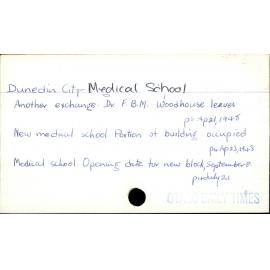 Dunedin City Medical School
Another exchange. Dr F.B.M. Woodhouse leaves
p4 Apr 21, 1948
New medical school Portion of building occupied
p4 Ap 23, 1948
Medical school. Opening date for new block, September 8
July 21
OTAGO DAILY TIMES